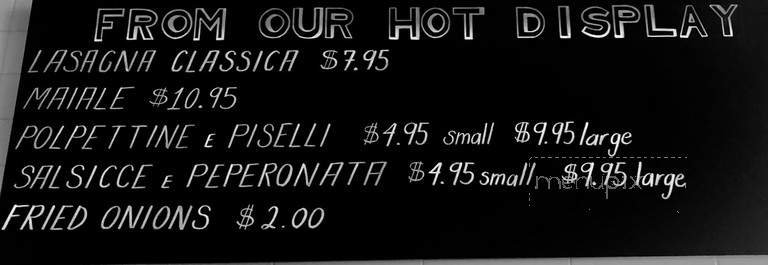 FROM OUR HOT DISPLAY
LASAGNA CLASSICA $7.95
MAIALE $10.95
POLPETTINE E PISELLI $4.95 small $9.95 large
SALSICCE E PEPERONATA $4.95 small $9.95 large
menupix
FRIED ONIONS $2.00